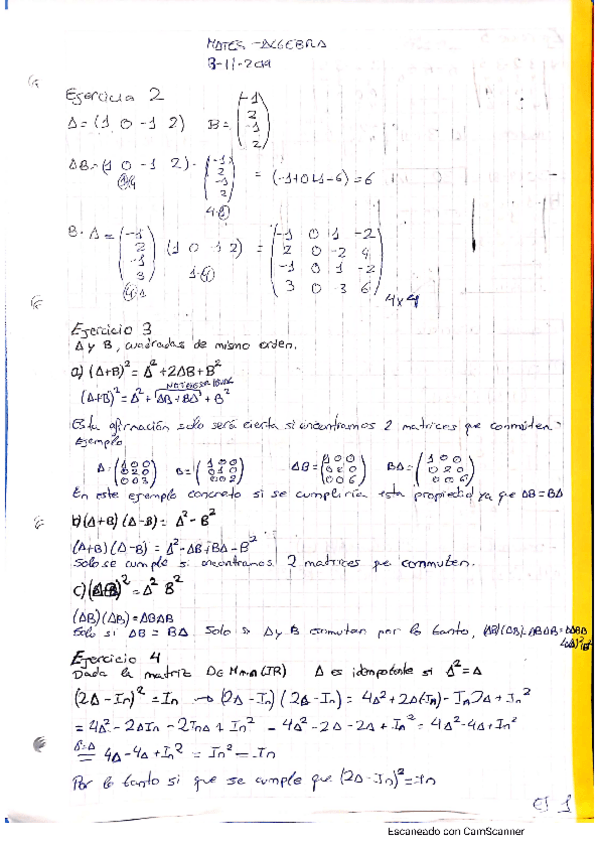 MATES - ALGEBRA
3-11-2019
Ejercicio 2
A = (1 0 -1 2) B = (-1 2 -1 2)
AB = (1 0 -1 2) · (-1 2 -1 2) = (-1+0+1-6) = 6
1·4 4·1
B · A = (-1 2 -1 3) (1 0 -1 2) = (-1 0 1 -2
2 0 -2 4
-1 0 1 -2
3 0 -3 6) 4x4
4·1 1·4
Ejercicio 3
A y B, cuadradas de mismo orden.
a) (A+B)² = A² + 2AB + B²
(A+B)² = A² + AB + BA + B²
Esta afirmación solo será cierta si encontramos 2 matrices que conmuten.
Ejemplo
A = (1 0 0 B = (1 0 0 AB = (1 0 0 BA = (1 0 0
0 2 0 0 1 0 0 2 0 0 2 0
0 0 3) 0 0 2) 0 0 6) 0 0 6)
En este ejemplo concreto si se cumpliría esta propiedad ya que AB = BA
b) (A+B) (A-B) = A² - B²
(A+B) (A-B) = A² - AB + BA - B²
Solo se cumple si encontramos 2 matrices que conmuten.
c) (AB)² = A² B²
(AB) (AB) = ABAB
Solo si AB = BA. Solo si A y B conmutan por lo tanto, (AB)(AB) = ABAB = AABB
Ejercicio 4
Dada la matriz A ∈ Mn(IR) A es idempotente si A² = A
(2A - In)² = In → (2A - In) (2A - In) = 4A² + 2A(In) - In2A + In²
= 4A² - 2AIn - 2InA + In² = 4A² - 2A - 2A + In² = 4A² - 4A + In²
A²=A
= 4A - 4A + In² = In² = In
Por lo tanto si que se cumple que (2A - In)² = In
EJ 1
Escaneado con CamScanner